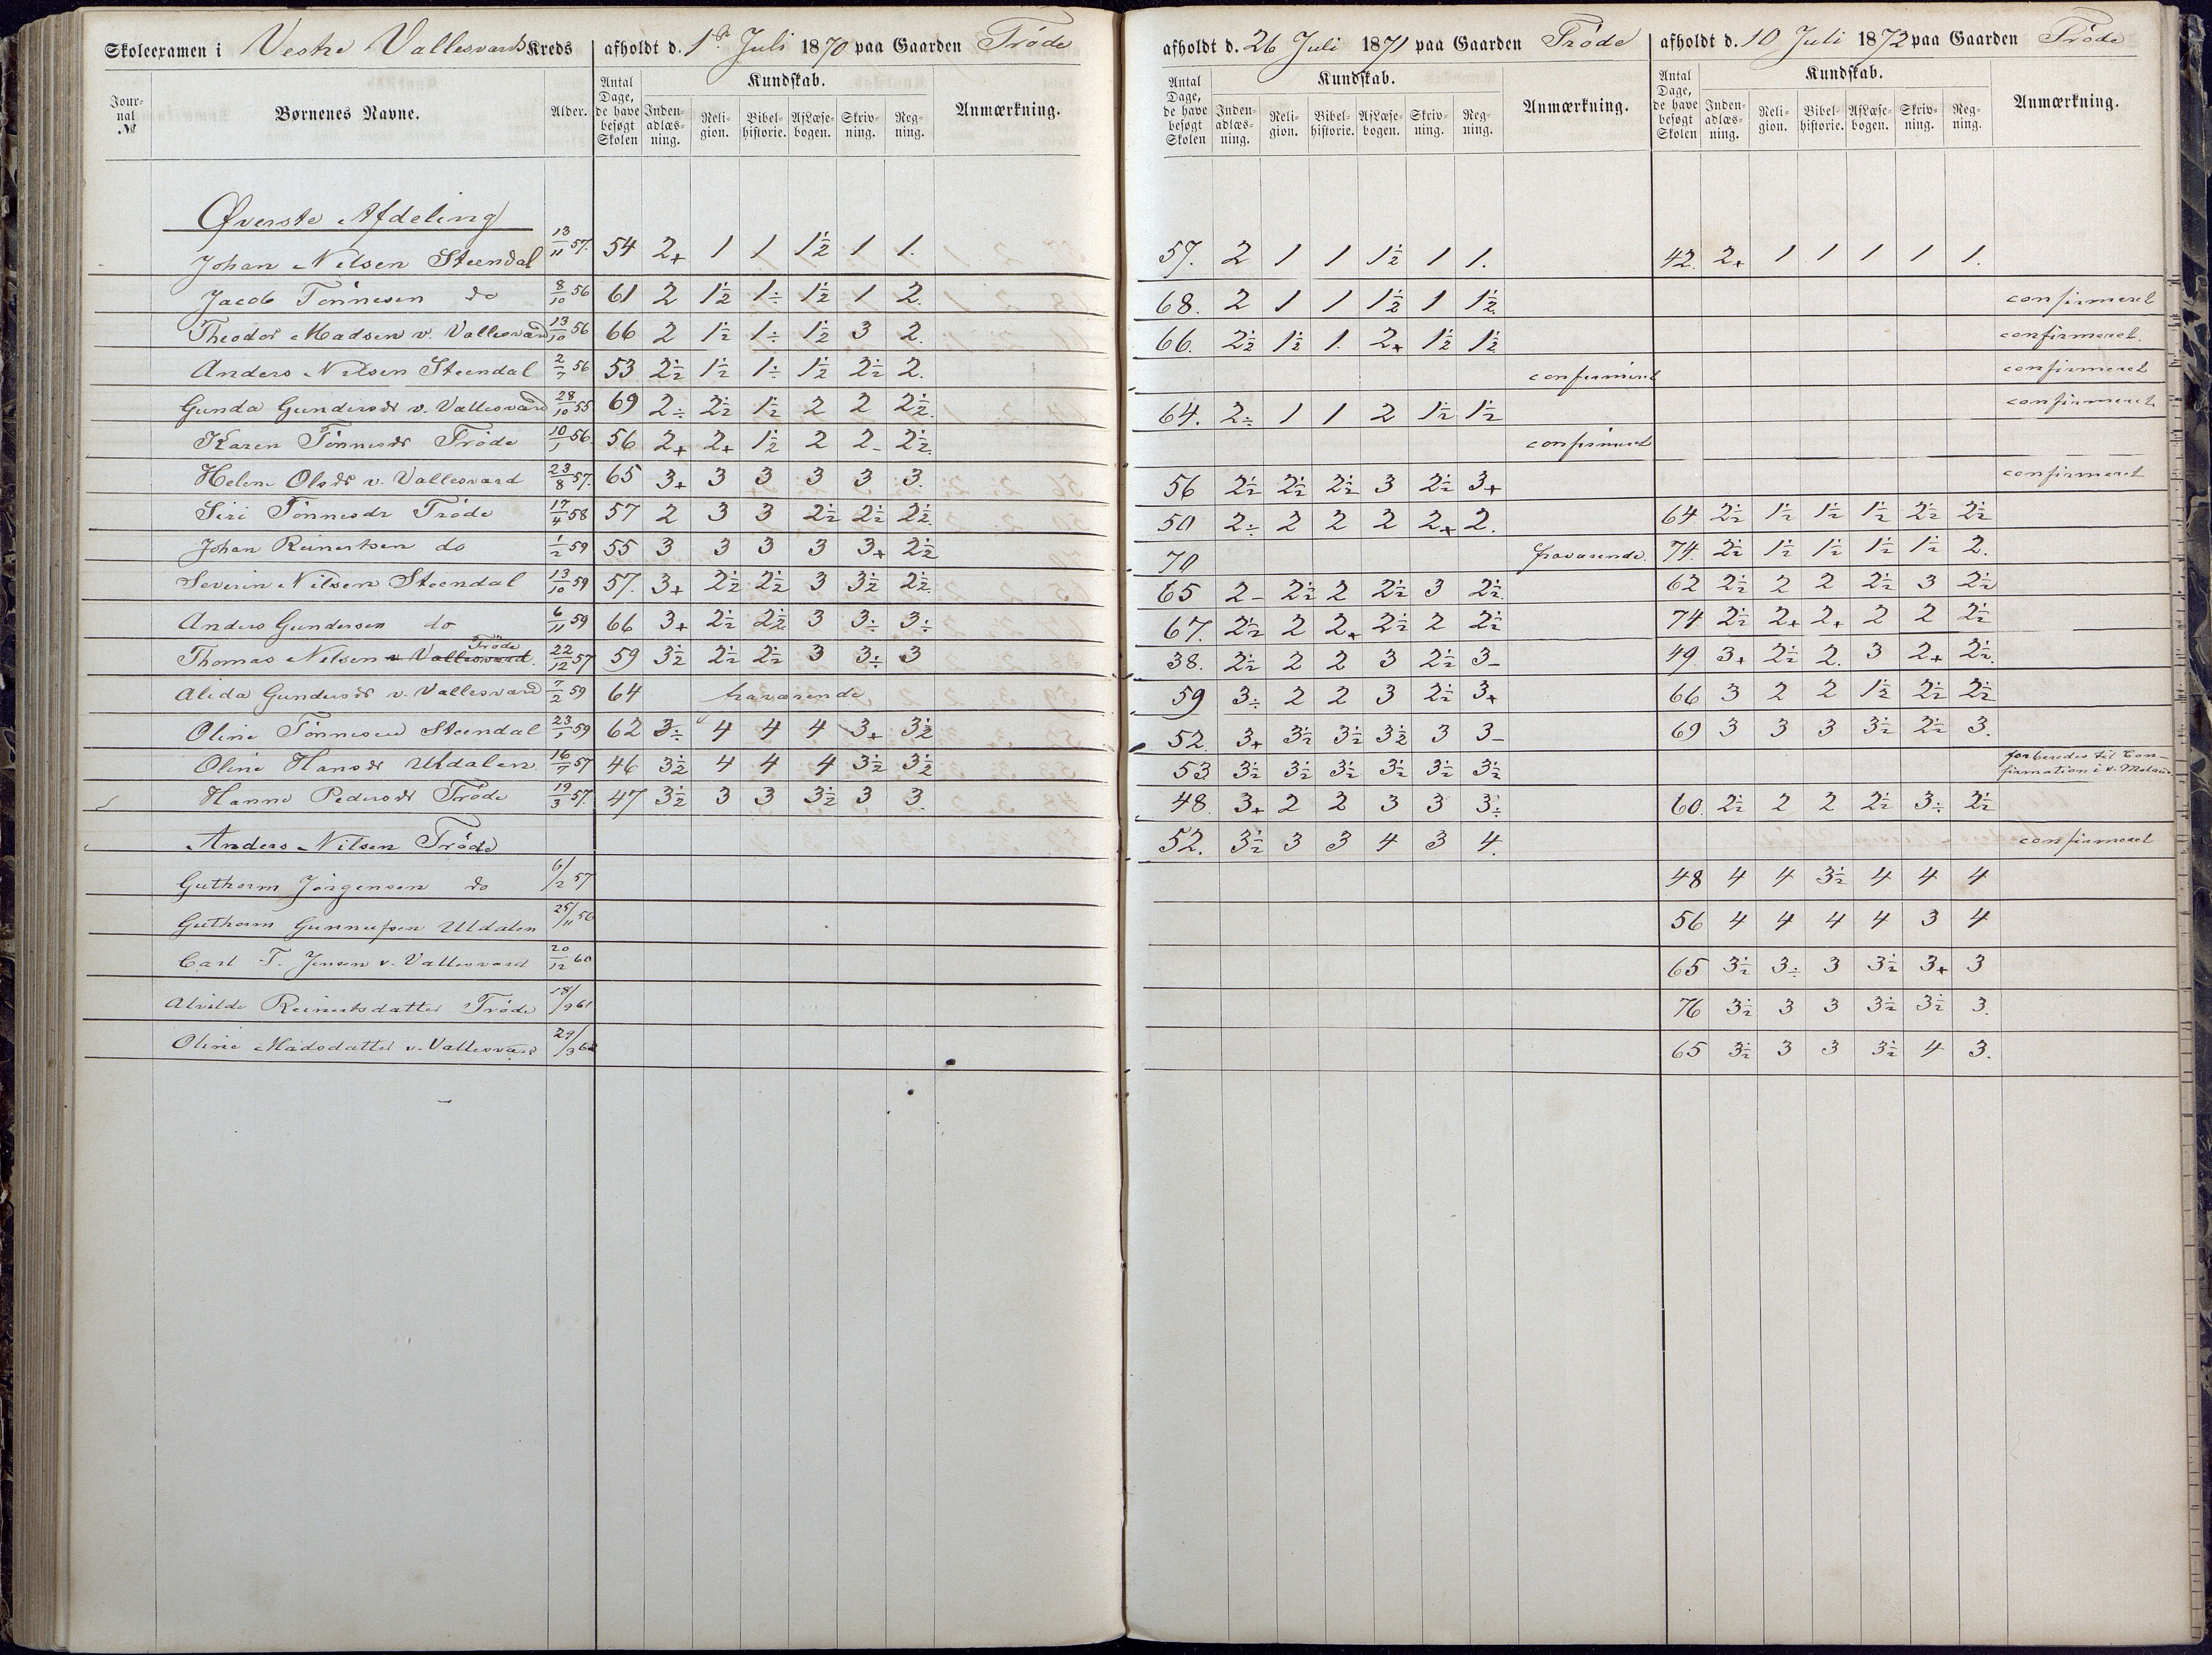 Skoleexamen i Vestre Vallesværds Kreds afholdt d. 1ste Juli 1870 paa Gaarden Trøde
afholdt d. 26 Juli 1871 paa Gaarden Trøde
afholdt d. 10 Juli 1872 paa Gaarden Trøde
Jour-nal № Børnenes Navne. Alder. Antal Dage, de have besøgt Skolen Kundskab. Inden-adlæs-ning. Reli-gion. Bibel-historie. Af Læse-bogen. Skriv-ning. Reg-ning. Anmærkning.
Antal Dage, de have besøgt Skolen Kundskab. Inden-adlæs-ning. Reli-gion. Bibel-historie. Af Læse-bogen. Skriv-ning. Reg-ning. Anmærkning.
Antal Dage, de have besøgt Skolen Kundskab. Inden-adlæs-ning. Reli-gion. Bibel-historie. Af Læse-bogen. Skriv-ning. Reg-ning. Anmærkning.
Øverste Afdeling
Johan Nilsen Steendal 13/11 57. 54 2+ 1 1 1½ 1 1. 57. 2 1 1 1½ 1 1. 42. 2+ 1 1 1 1 1.
Jacob Tønnesen do 8/10 56 61 2 1½ 1÷ 1½ 1 2. 68. 2 1 1 1½ 1 1½. confirmeret
Theodor Madsen v. Vallesværd 13/10 56 66 2 1½ 1÷ 1½ 3 2. 66. 2½ 1½ 1. 2+ 1½ 1½. confirmeret.
Anders Nilsen Steendal 2/7 56 53 2½ 1½ 1÷ 1½ 2½ 2. confirmeret confirmeret
Gunda Gundersdr v. Vallesværd 28/10 55 69 2÷ 2½ 1½ 2 2 2½. 64. 2÷ 1 1 2 1½ 1½ confirmeret
Karen Tønnesdr Trøde 10/1 56. 56 2+ 2+ 1½ 2 2- 2½. confirmeret
Helene Olsdr v. Vallesværd 23/8 57. 65 3+ 3 3 3 3 3. 56 2½ 2½ 2½ 3 2½ 3+ confirmeret
Siri Tønnesdr Trøde 17/4 58 57 2 3 3 2½ 2½ 2½. 50 2÷ 2 2 2 2+ 2. 64 2½ 1½ 1½ 1½ 2½ 2½
Johan Reinertsen do 1/2 59 55 3 3 3 3 3+ 2½ 70 fraværende. 74. 2½ 1½ 1½ 1½ 1½ 2.
Severin Nilsen Steendal 13/10 59 57. 3+ 2½ 2½ 3 3½ 2½. 65 2- 2½ 2 2½ 3 2½. 62 2½ 2 2 2½ 3 2½
Anders Gundersen do 6/11 59 66 3+ 2½ 2½ 3 3÷ 3÷ 67. 2½ 2 2+ 2½ 2 2½ 74 2½ 2+ 2+ 2 2 2½
Trøde
Thomas Nilsen v. Vallesværd. 22/12 57 59 3½ 2½ 2½ 3 3÷ 3 38. 2½ 2 2 3 2½ 3- 49. 3+ 2½ 2. 3 2+ 2½.
Alida Gundersdr v. Vallesværd 7/2 59 64 fraværende 59 3÷ 2 2 3 2½ 3+ 66 3 2 2 1½ 2½ 2½
Oline Tønnesen Steendal 23/1 59 62 3÷ 4 4 4 3+ 3½ 52. 3+ 3½ 3½ 3½ 3 3- 69 3 3 3 3½ 2½ 3.
Oline Hansdr Uldalen 16/7 57 46 3½ 4 4 4 3½ 3½ 53 3½ 3½ 3½ 3½ 3½ 3½ forberedes til Con-
firmation i v. Moland
Hanne Pedersdr Trøde 19/3 57. 47 3½ 3 3 3½ 3 3. 48. 3+ 2 2 3 3 3÷ 60. 2½ 2 2 2½ 3÷ 2½
Anders Nilsen Trøde 52. 3½ 3 3 4 3 4. confirmeret
Guthorm Jørgensen do 6/2 57 48 4 4 3½ 4 4 4
Guthorm Gunnufsen Uldalen 25/11 56 56 4 4 4 4 3 4
Carl T. Jensen v. Vallesværd 20/12 60 65 3½ 3÷ 3 3½ 3+ 3
Alvilde Reinertsdatter Trøde 18/9 61 76 3½ 3 3 3½ 3½ 3.
Oline Madsdatter v. Vallesværd 29/3 62 65 3½ 3 3 3½ 4 3.